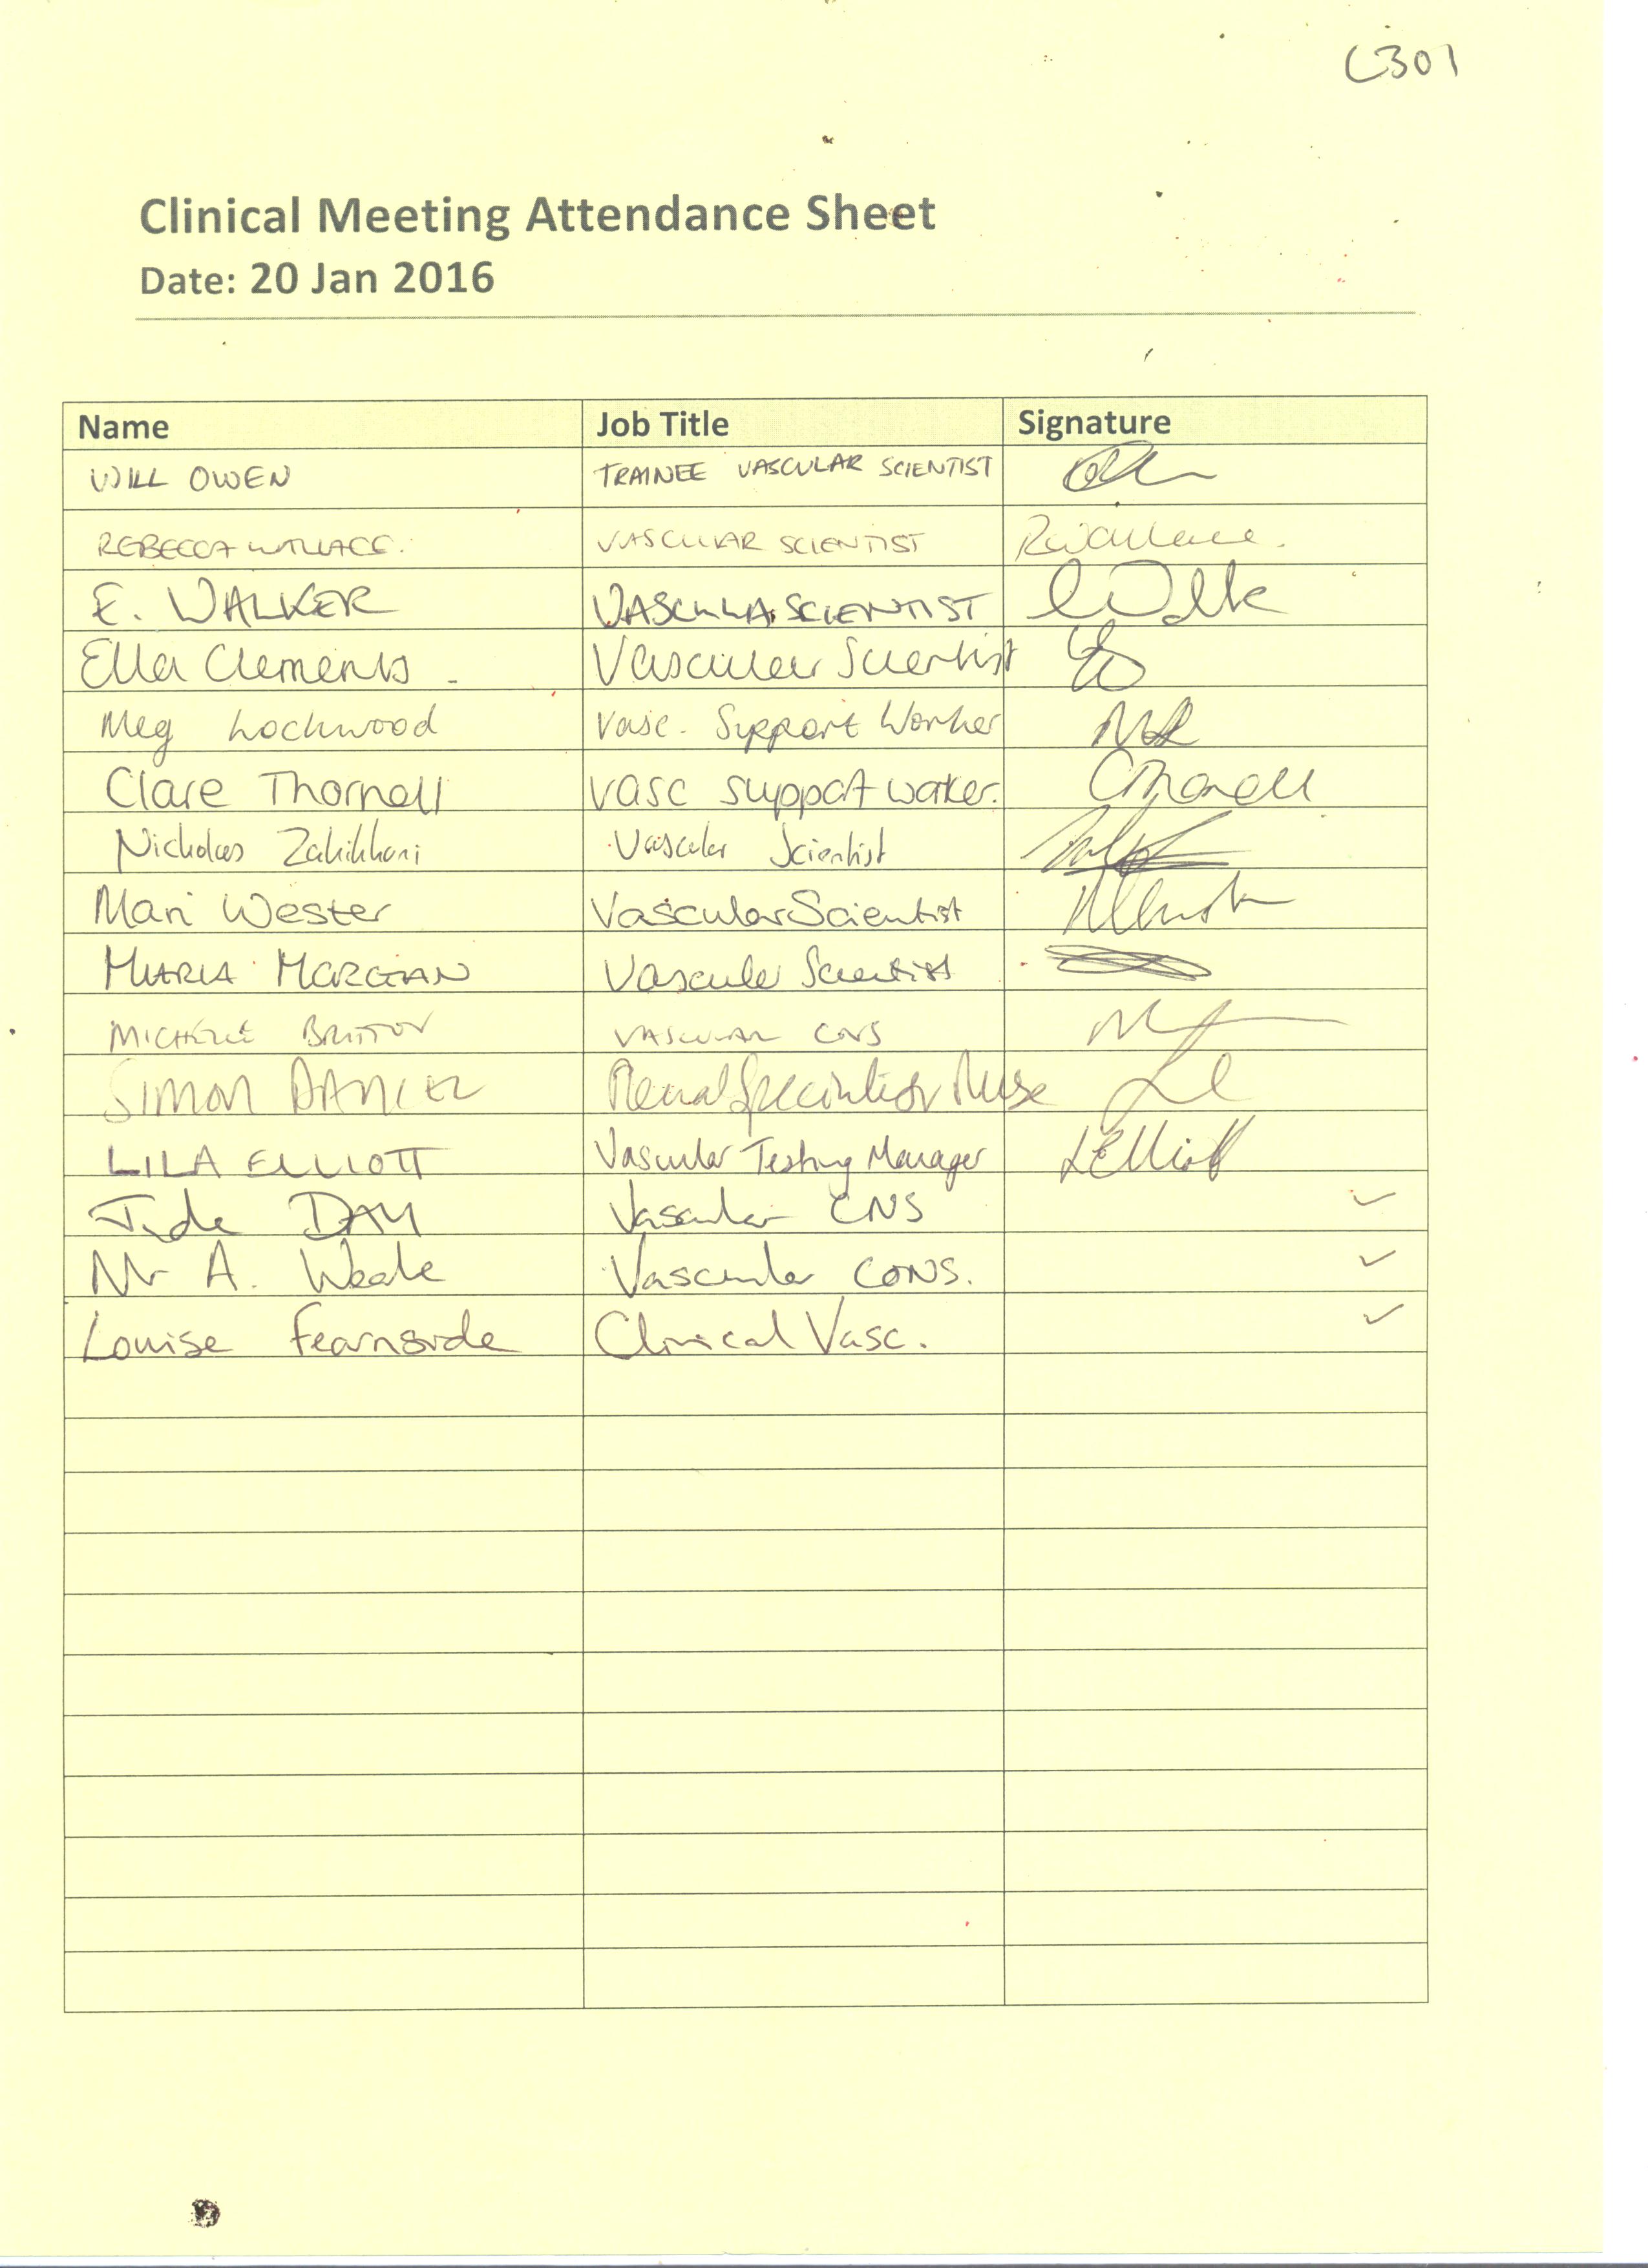 C301
Clinical Meeting Attendance Sheet
Date: 20 Jan 2016
Name Job Title Signature
WILL OWEN TRAINEE VASCULAR SCIENTIST
REBECCA WALLACE. VASCULAR SCIENTIST RWallace.
E. WALKER VASCULA SCIENTIST
Ella Clements. Vascular Scientist
Meg Lockwood Vasc. Support Worker ML
Clare Thornell vasc support worker. CThornell
Nicholas Zakikhani Vascular Scientist
Mari Wester Vascular Scientist
MARIA MORGAN Vascular Scientist
MICHELE BRITTON VASCULAR CNS
SIMON DANIEL Renal Specialist Nurse
LILA ELLIOTT Vascular Testing Manager LElliott
Jude DAY Vascular CNS ✓
Mr A. Weale Vascular CONS. ✓
Louise Fearnside Clinical Vasc. ✓